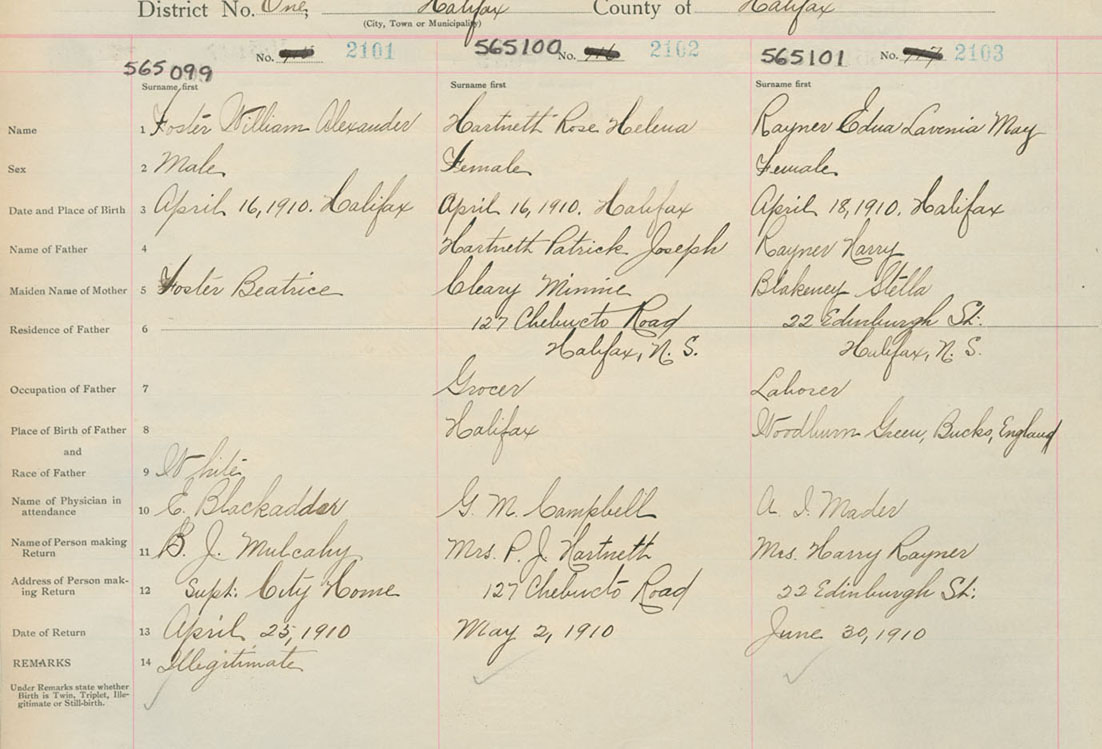 District No. One, Halifax County of Halifax
(City, Town or Municipality)
565099 No. 2101 565100 No. 2102 565101 No. 2103
Surname first Surname first Surname first
Name 1 Foster William Alexander Hartneth Rose Helena Rayner Edna Lavenia May
Sex 2 Male Female Female
Date and Place of Birth 3 April 16, 1910. Halifax April 16, 1910. Halifax April 18, 1910. Halifax
Name of Father 4 Hartneth Patrick Joseph Rayner Harry
Maiden Name of Mother 5 Foster Beatrice Cleary Minnie Blakeney Stella
Residence of Father 6 127 Chebucto Road 22 Edinburgh St.
Halifax, N. S. Halifax, N. S.
Occupation of Father 7 Grocer Laborer
Place of Birth of Father 8 Halifax Woodburn Green, Bucks, England
and
Race of Father 9 White
Name of Physician in attendance 10 E. Blackadder G. M. Campbell A. I. Mader
Name of Person making Return 11 B. J. Mulcahy Mrs. P. J. Hartneth Mrs. Harry Rayner
Address of Person mak-ing Return 12 Supt. City Home 127 Chebucto Road 22 Edinburgh St.
Date of Return 13 April 25, 1910 May 2, 1910 June 30, 1910
REMARKS 14 Illegitimate
Under Remarks state whether
Birth is Twin, Triplet, Ille-
gitimate or Still-birth.